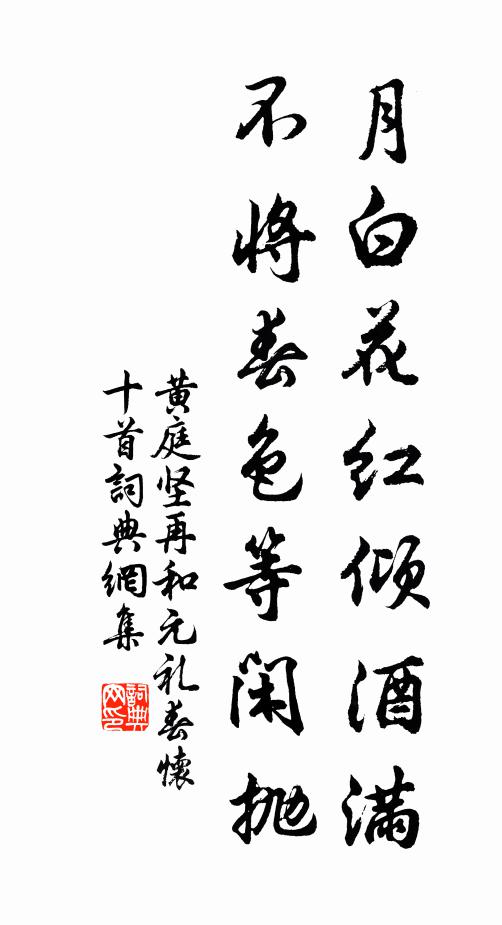 月白花红倾酒满
不将春色等闲抛
黄庭坚再和元礼春懷
十首詞典網集
詞典网印